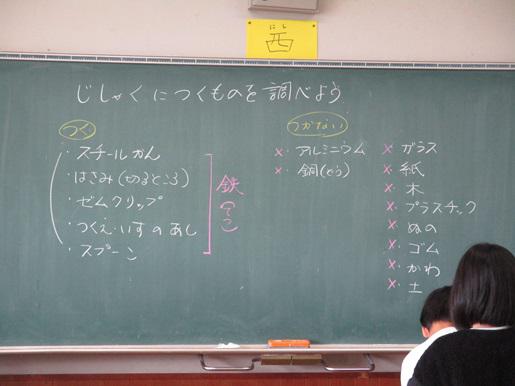 にし
西
じしゃくにつくものを調べよう
つく
・スチールかん
・はさみ(切るところ)
・ゼムクリップ
・つくえ・いすのあし
・スプーン
鉄(てつ)
つかない
×・アルミニウム
×・銅(どう)
×・ガラス
×・紙
×・木
×・プラスチック
×・ぬの
×・ゴム
×・かわ
×・土